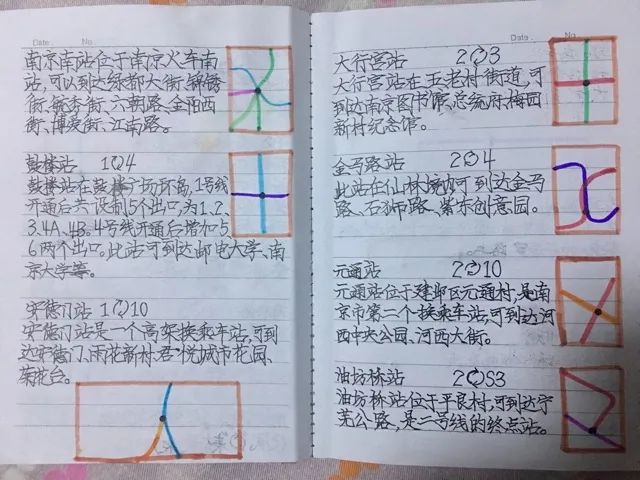 Date. No.
南京南站位于南京火车南
站,可以到达绿都大街、锦绣
街、毓秀街、六朝路、金阳西
街、博爱街、江南路。
鼓楼站 1↻4
鼓楼站在鼓楼广场环岛,1号线
开通后共设制5个出口,为1、2、
3、4A、4B、4号线开通后增加5、
6两个出口,此站可到达邮电大学、南
京大学等。
安德门站 1↻10
安德门站是一个高架换乘车站,可到
达安德门、雨花新村、君悦城市花园、
菊花台。
Date. No.
大行宫站 2↻3
大行宫站在五老村街道,可
到达南京图书馆、总统府、梅园
新村纪念馆。
金马路站 2↻4
此站在仙林境内可到达金马
路、石狮路、紫东创意园。
元通站 2↻10
元通站位于建邺区元通村,是南
京市第二个换乘车站,可到达河
西中央公园、河西大街。
油坊桥站 2↻S3
油坊桥站位于平良村,可到达宁
芜公路,是二号线的终点站。